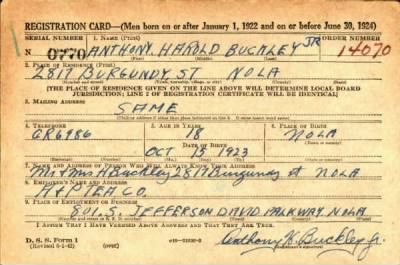 REGISTRATION CARD—(Men born on or after January 1, 1922 and on or before June 30, 1924)
SERIAL NUMBER 1. NAME (Print) ORDER NUMBER
N 0770 ANTHONY HAROLD BUCKLEY JR 14070
(First) (Middle) (Last)
2. PLACE OF RESIDENCE (Print)
2817 BURGUNDY ST NOLA
(Number and street) (Town, township, village, or city) (County) (State)
[THE PLACE OF RESIDENCE GIVEN ON THE LINE ABOVE WILL DETERMINE LOCAL BOARD
JURISDICTION; LINE 2 OF REGISTRATION CERTIFICATE WILL BE IDENTICAL]
3. MAILING ADDRESS
SAME
(Mailing address if other than place indicated on line 2. If same insert word same)
4. TELEPHONE 5. AGE IN YEARS 6. PLACE OF BIRTH
18 NOLA
DATE OF BIRTH
OCT 15 1923
(Mo.) (Day) (Yr.)
7. NAME AND ADDRESS OF PERSON WHO WILL ALWAYS KNOW YOUR ADDRESS
Mr & Mrs H Buckley 2817 Burgundy st NOLA
8. EMPLOYER'S NAME AND ADDRESS
A & P TEA CO.
9. PLACE OF EMPLOYMENT OR BUSINESS
801 S. JEFFERSON DAVID PARKWAY, NOLA
(Number and street or R. F. D. number) (Town) (County) (State)
I AFFIRM THAT I HAVE VERIFIED ABOVE ANSWERS AND THAT THEY ARE TRUE.
D. S. S. Form 1
(Revised 6-1-42)
Anthony H. Buckley Jr.